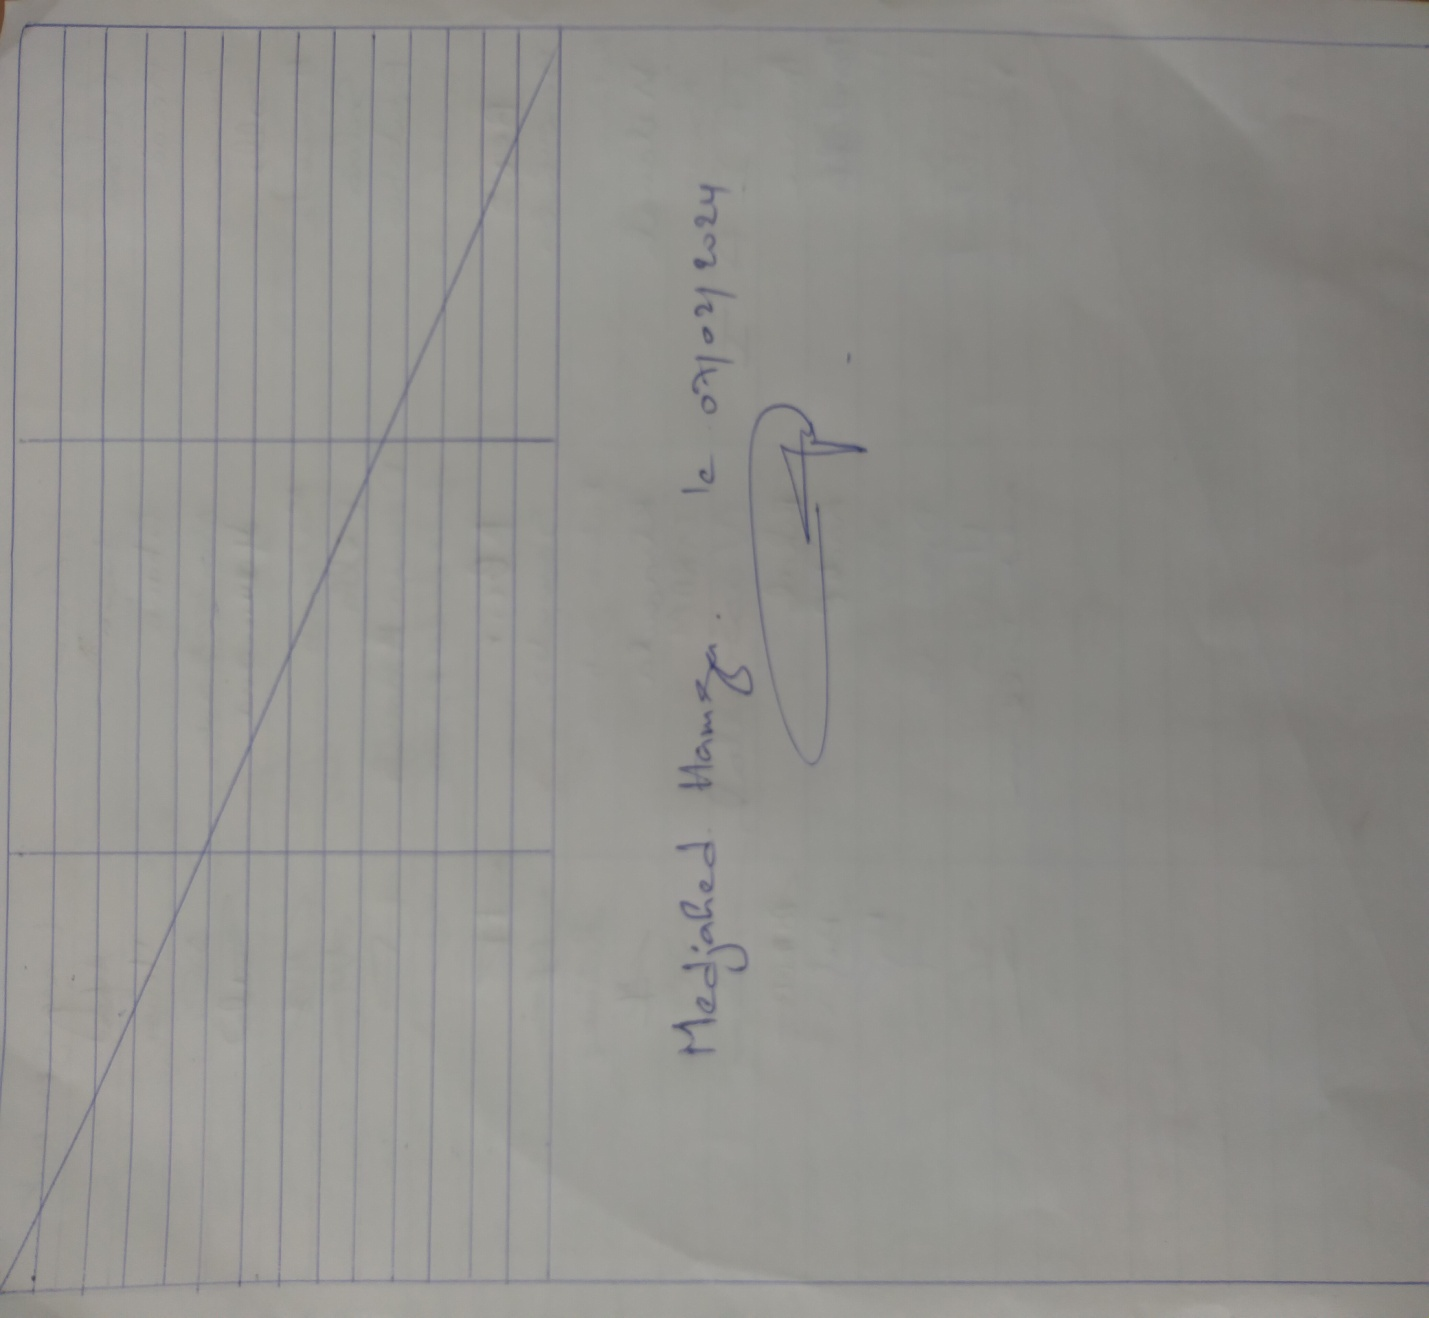 Medjahed Hamza. le 07/02/2024